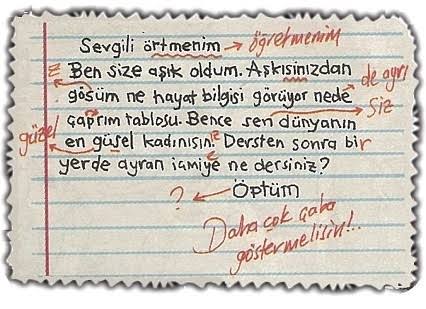 Sevgili örtmenim → öğretmenim
z Ben size aşık oldum. Aşkısinizdan
de ayrı
gösüm ne hayat bilgisi görüyor nede
Siz
çaprım tablosu. Bence sen dünyanın
güzel
en güsel kadınısın. Dersten sonra bir
yerde ayran içmiye ne dersiniz?
? ← Öptüm
Daha çok çaba
göstermelisin!..